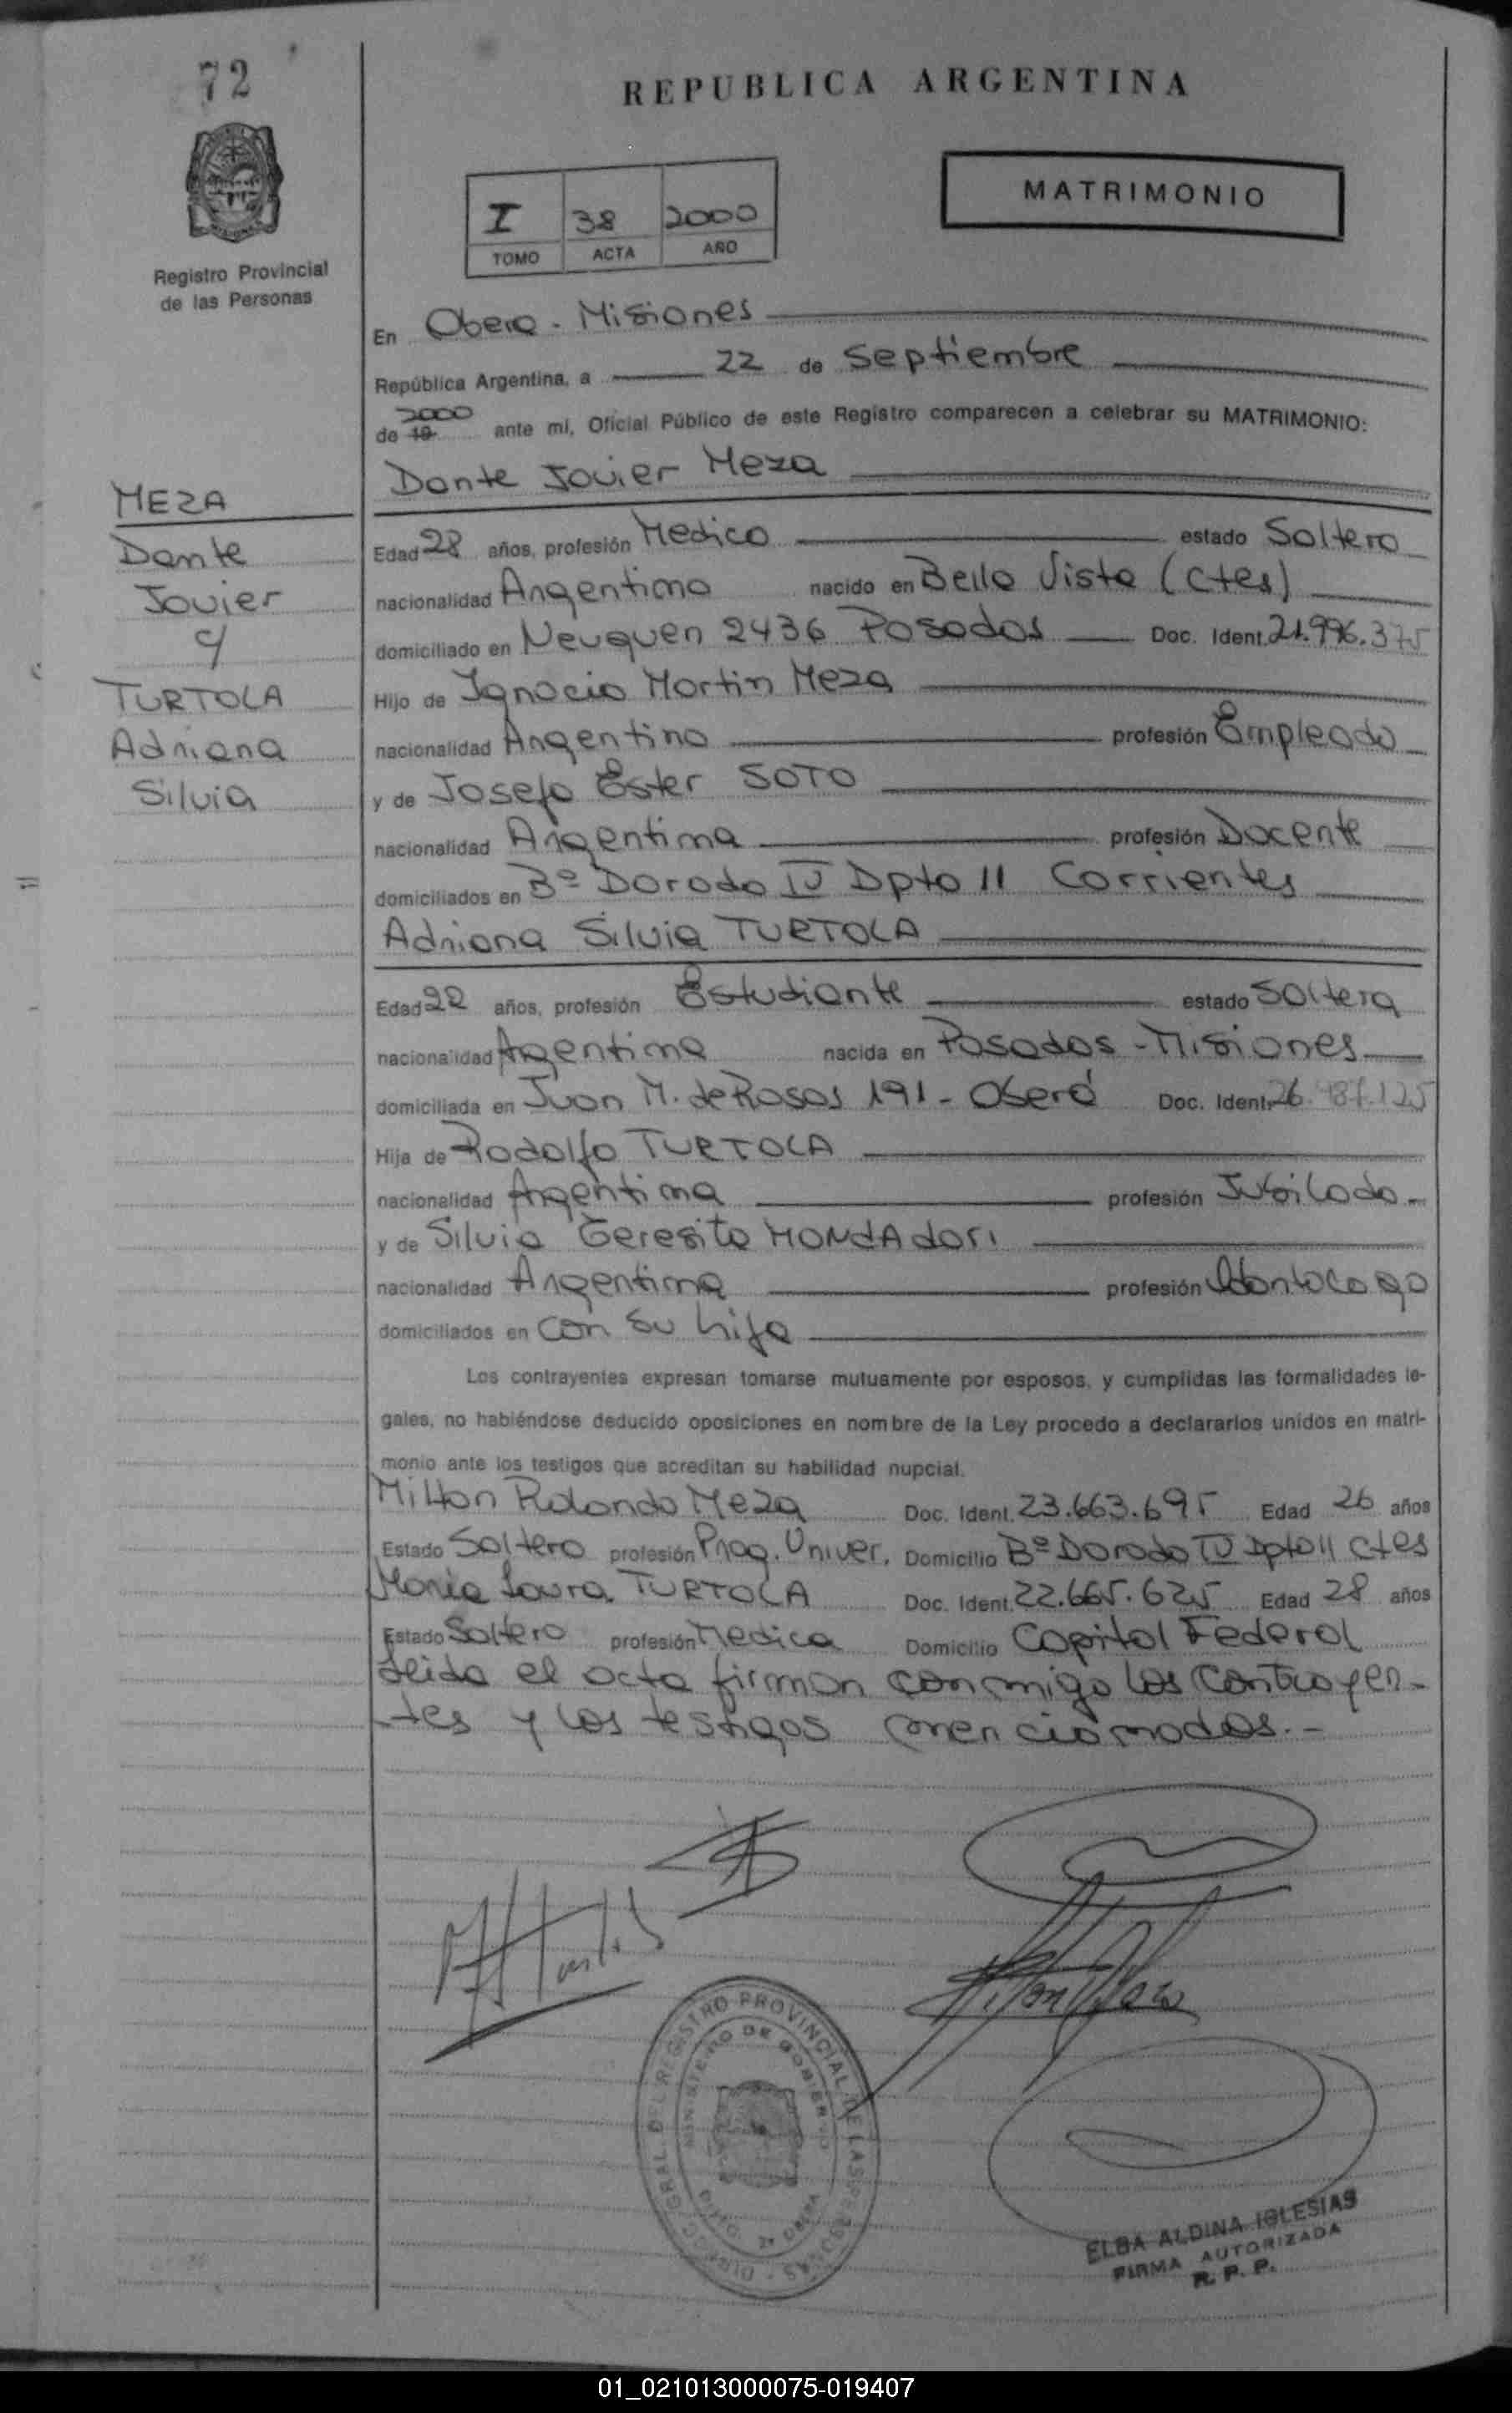 72
REPUBLICA ARGENTINA
MATRIMONIO
I 38 2000
TOMO ACTA AÑO
Registro Provincial
de las Personas
En Obera - Misiones
República Argentina, a 22 de Septiembre
2000
de 19 ante mí, Oficial Público de este Registro comparecen a celebrar su MATRIMONIO:
Dante Javier Meza
MEZA
Dante
Javier
c/
TURTOLA
Adriana
Silvia
Edad 28 años, profesión Medico estado Soltero
nacionalidad Argentina nacido en Bella Vista (Ctes)
domiciliado en Neuquen 2436 Posadas Doc. Ident. 21.996.375
Hijo de Ignacio Martin Meza
nacionalidad Argentino profesión Empleado
y de Josefa Ester SOTO
nacionalidad Argentina profesión Docente
domiciliados en Bº Dorado IV Dpto 11 Corrientes
Adriana Silvia TURTOLA
Edad 22 años, profesión Estudiante estado Soltera
nacionalidad Argentina nacida en Posadas - Misiones
domiciliada en Juan M. de Rosas 191 - Oberá Doc. Ident. 26.487.125
Hija de Rodolfo TURTOLA
nacionalidad Argentina profesión Jubilado -
y de Silvia Teresita MONDAdori
nacionalidad Argentina profesión Odontologo
domiciliados en con su hija
Los contrayentes expresan tomarse mutuamente por esposos, y cumplidas las formalidades le-
gales, no habiéndose deducido oposiciones en nombre de la Ley procedo a declararlos unidos en matri-
monio ante los testigos que acreditan su habilidad nupcial.
Milton Rolando Meza Doc. Ident. 23.663.695 Edad 26 años
Estado Soltero profesión Prog. Univer. Domicilio Bº Dorado IV Dpto 11 Ctes
Maria Laura TURTOLA Doc. Ident. 22.665.625 Edad 28 años
Estado Soltero profesión Medica Domicilio Capital Federal
Leida el acta firman conmigo los contrayen-
-tes y los testigos mencionados.-
DIRECC. GRAL. DEL REGISTRO PROVINCIAL DE LAS PERSONAS
MINISTERIO DE GOBIERNO
ELBA ALDINA IGLESIAS
FIRMA AUTORIZADA
R. P. P.
01_021013000075-019407